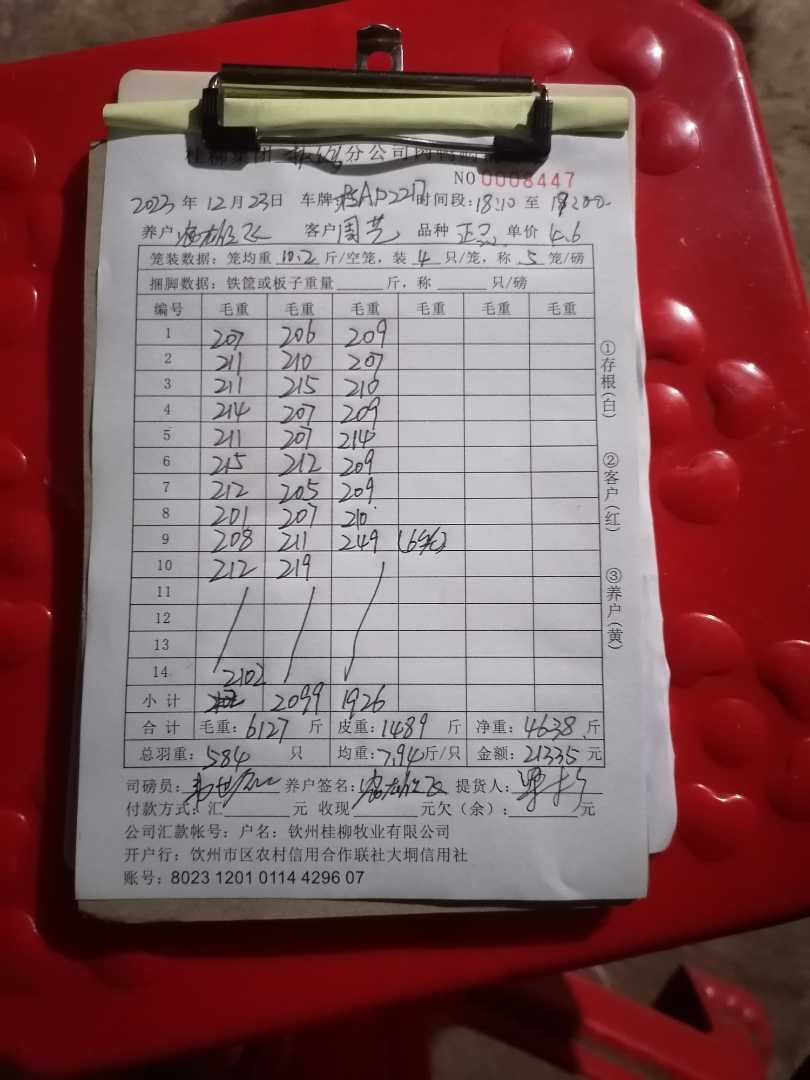 分公司肉鸭
NO 0008447
2023 年 12 月 23 日 车牌 AD2217 时间段: 18:10 至
养户 客户 周艺 品种 正品 单价 4.6
笼装数据: 笼均重 10.2 斤/空笼, 装 4 只/笼, 称 5 笼/磅
捆脚数据: 铁筐或板子重量 斤, 称 只/磅
编号 毛重 毛重 毛重 毛重 毛重 毛重
1 207 206 209
2 211 210 207
3 211 215 210
4 214 207 209
5 211 207 214
6 215 212 209
7 212 205 209
8 201 207 210
9 208 211 249 (6笼)
10 212 219
11
12
13
14
小计 2102 2099 1926
合计 毛重: 6127 斤 皮重: 1489 斤 净重: 4638 斤
总羽重: 584 只 均重: 7.94 斤/只 金额: 21335 元
司磅员: 养户签名: 提货人:
付款方式: 汇 元 收现 元欠(余): 元
公司汇款帐号: 户名: 钦州桂柳牧业有限公司
开户行: 钦州市区农村信用合作联社大垌信用社
账号: 8023 1201 0114 4296 07
①存根(白)
②客户(红)
③养户(黄)